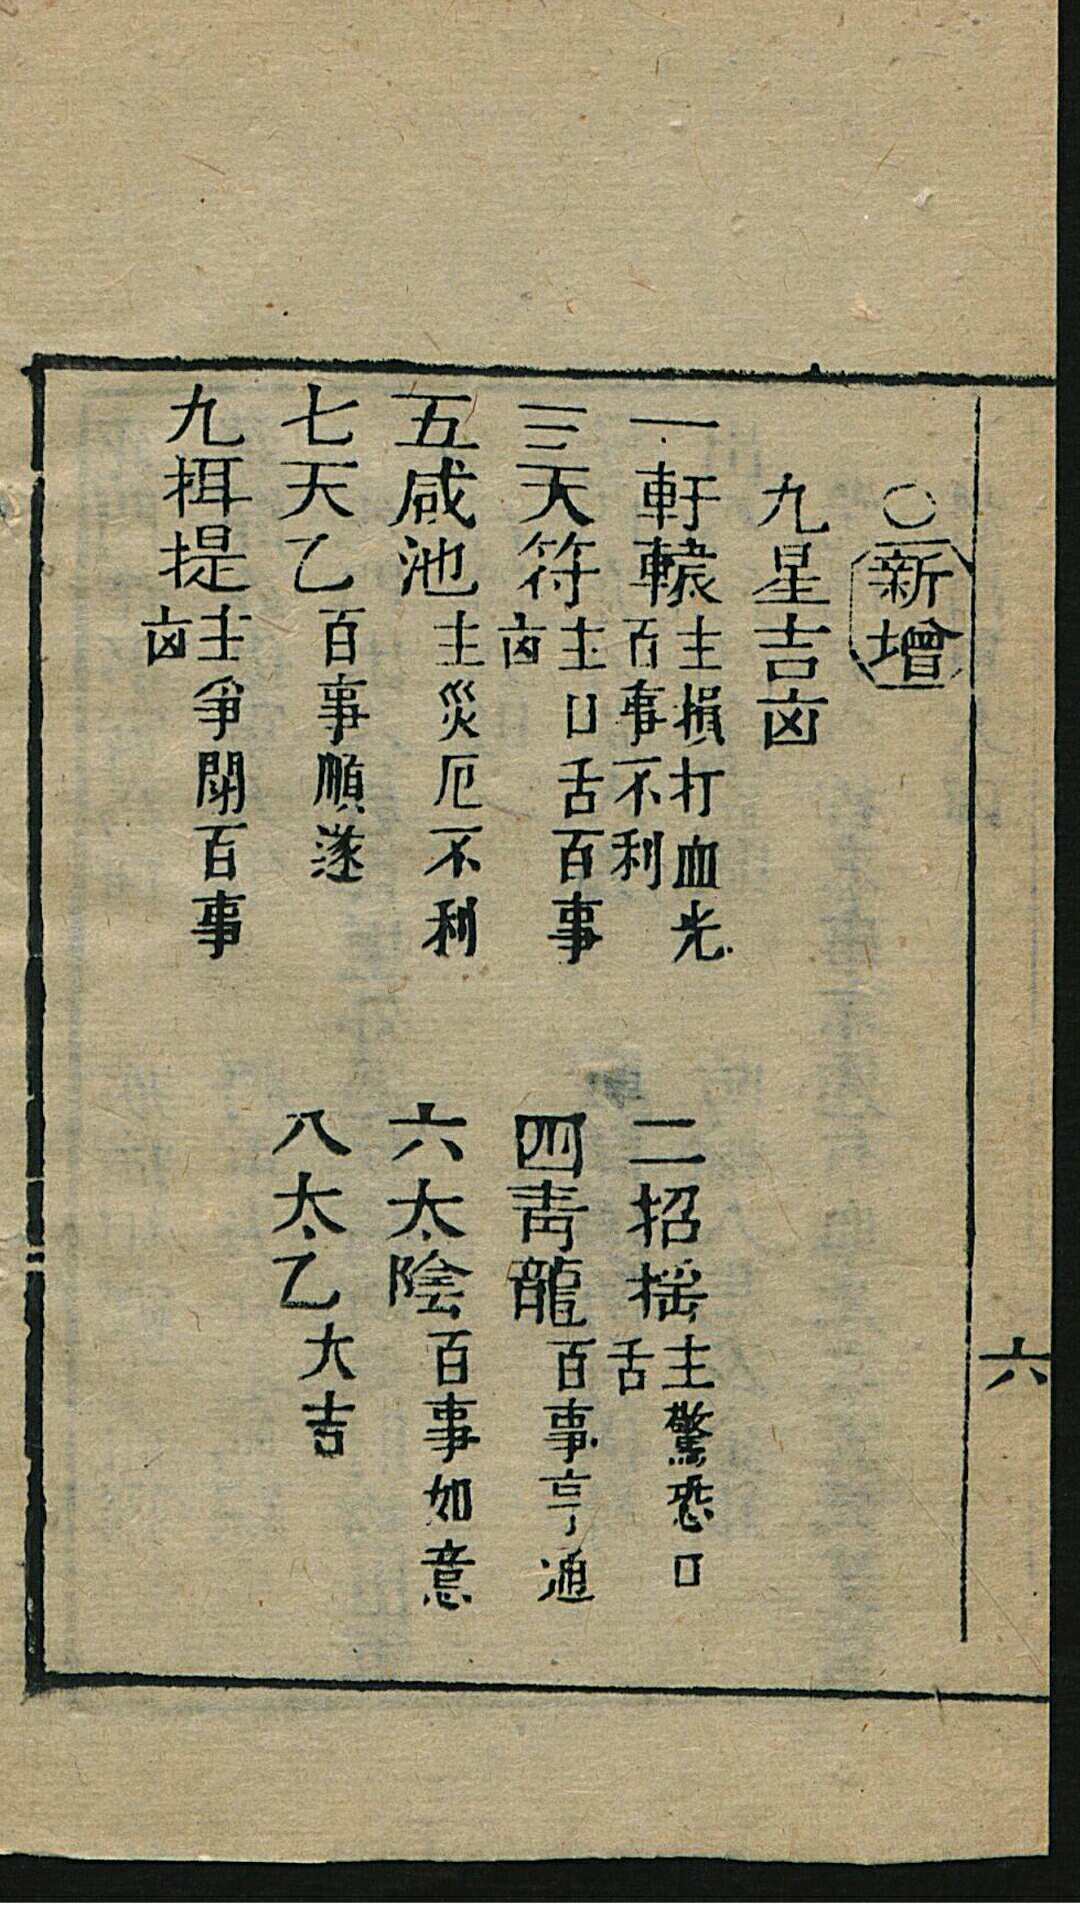 六
○新增
九星吉凶
一軒轅主損打血光百事不利
二招搖主驚恐口舌
三天符主口舌百事凶
四青龍百事亨通
五咸池主災厄不利
六太陰百事如意
七天乙百事順遂
八太乙大吉
九摄提主爭鬧百事凶